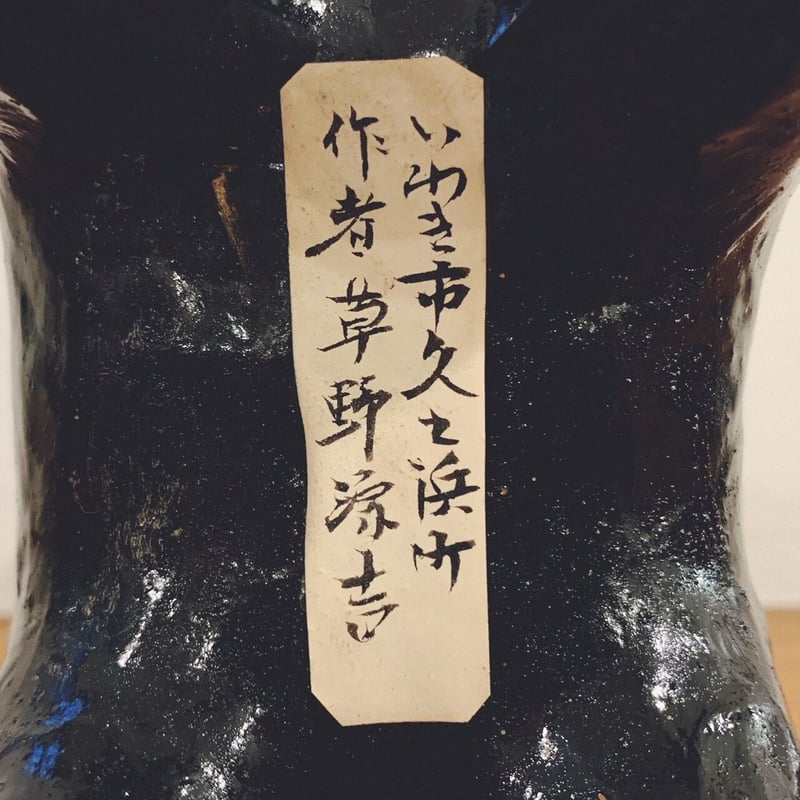 いわき市久之浜町
作者草野源吉